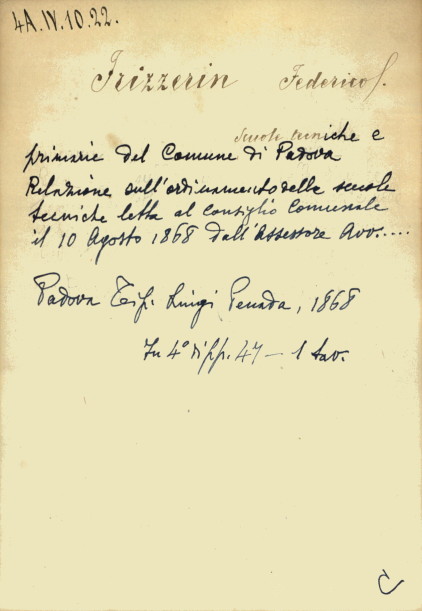 4A.IV.10.22.
Frizzerin Federico
Scuole tecniche e
primarie del Comune di Padova
Relazione sull'ordinamento delle scuole
tecniche letta al Consiglio Comunale
il 10 Agosto 1868 dall'Assessore Avv....
Padova Tip. Luigi Penada, 1868
In 4° di pp. 47 – 1 tav.